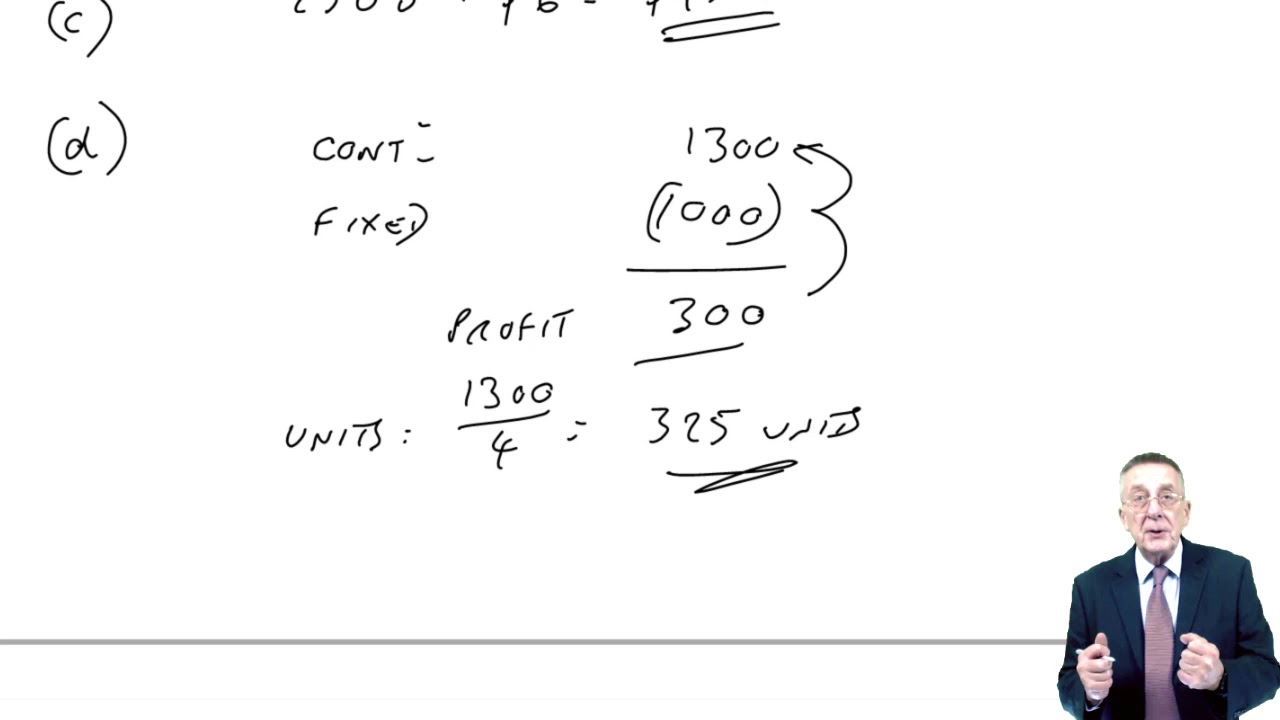 (c)
(d) CONT = 1300
FIXED (1000)
PROFIT 300
UNITS : 1300 / 4 = 325 UNITS